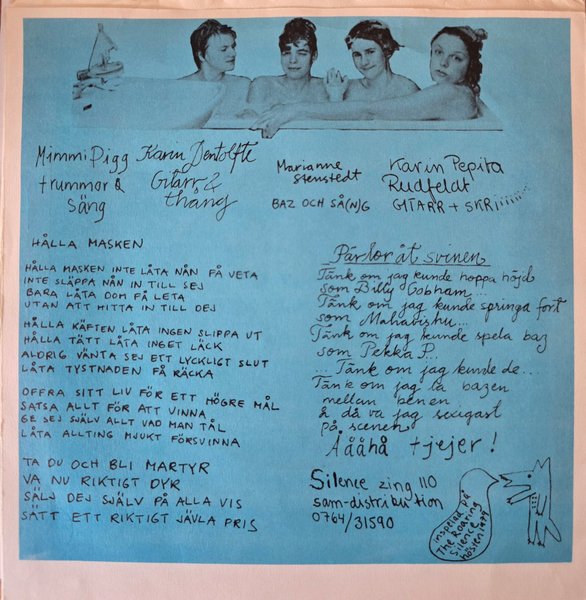 Mimmi Pigg
trummor &
Sång
Karin Jentolfte
Gitarr &
thång
Marianne
Stenstedt
BAZ OCH SÅ(N)G
Karin Pepita
Rudfeldt
GITARR + SKRiiiiiiii
HÅLLA MASKEN
HÅLLA MASKEN INTE LÅTA NÅN FÅ VETA
INTE SLÄPPA NÅN IN TILL SEJ
BARA LÅTA DOM FÅ LETA
UTAN ATT HITTA IN TILL DEJ
HÅLLA KÄFTEN LÅTA INGEN SLIPPA UT
HÅLLA TÄTT LÅTA INGET LÄCK
ALDRIG VÄNTA SEJ ETT LYCKLIGT SLUT
LÅTA TYSTNADEN FÅ RÄCKA
OFFRA SITT LIV FÖR ETT HÖGRE MÅL
SATSA ALLT FÖR ATT VINNA
GE SEJ SJÄLV ALLT VAD MAN TÅL
LÅTA ALLTING MJUKT FÖRSVINNA
TA DU OCH BLI MARTYR
VA NU RIKTIGT DYR
SÄLJ DEJ SJÄLV PÅ ALLA VIS
SÄTT ETT RIKTIGT JÄVLA PRIS
Pärlor åt svinen
Tänk om jag kunde hoppa höjd
som Billy Cobham...
Tänk om jag kunde springa fort
som Mahavishu...
Tänk om jag kunde spela baz
som Pekka P...
... Tänk om jag kunde de...
Tänk om jag la bazen
mellan benen
å då va jag sexigast
på scenen
Åååhå tjejer!
Silence zing 110
sam-distribution
0764/31590
inspelad på
The Roaring
Silence
hösten 1979